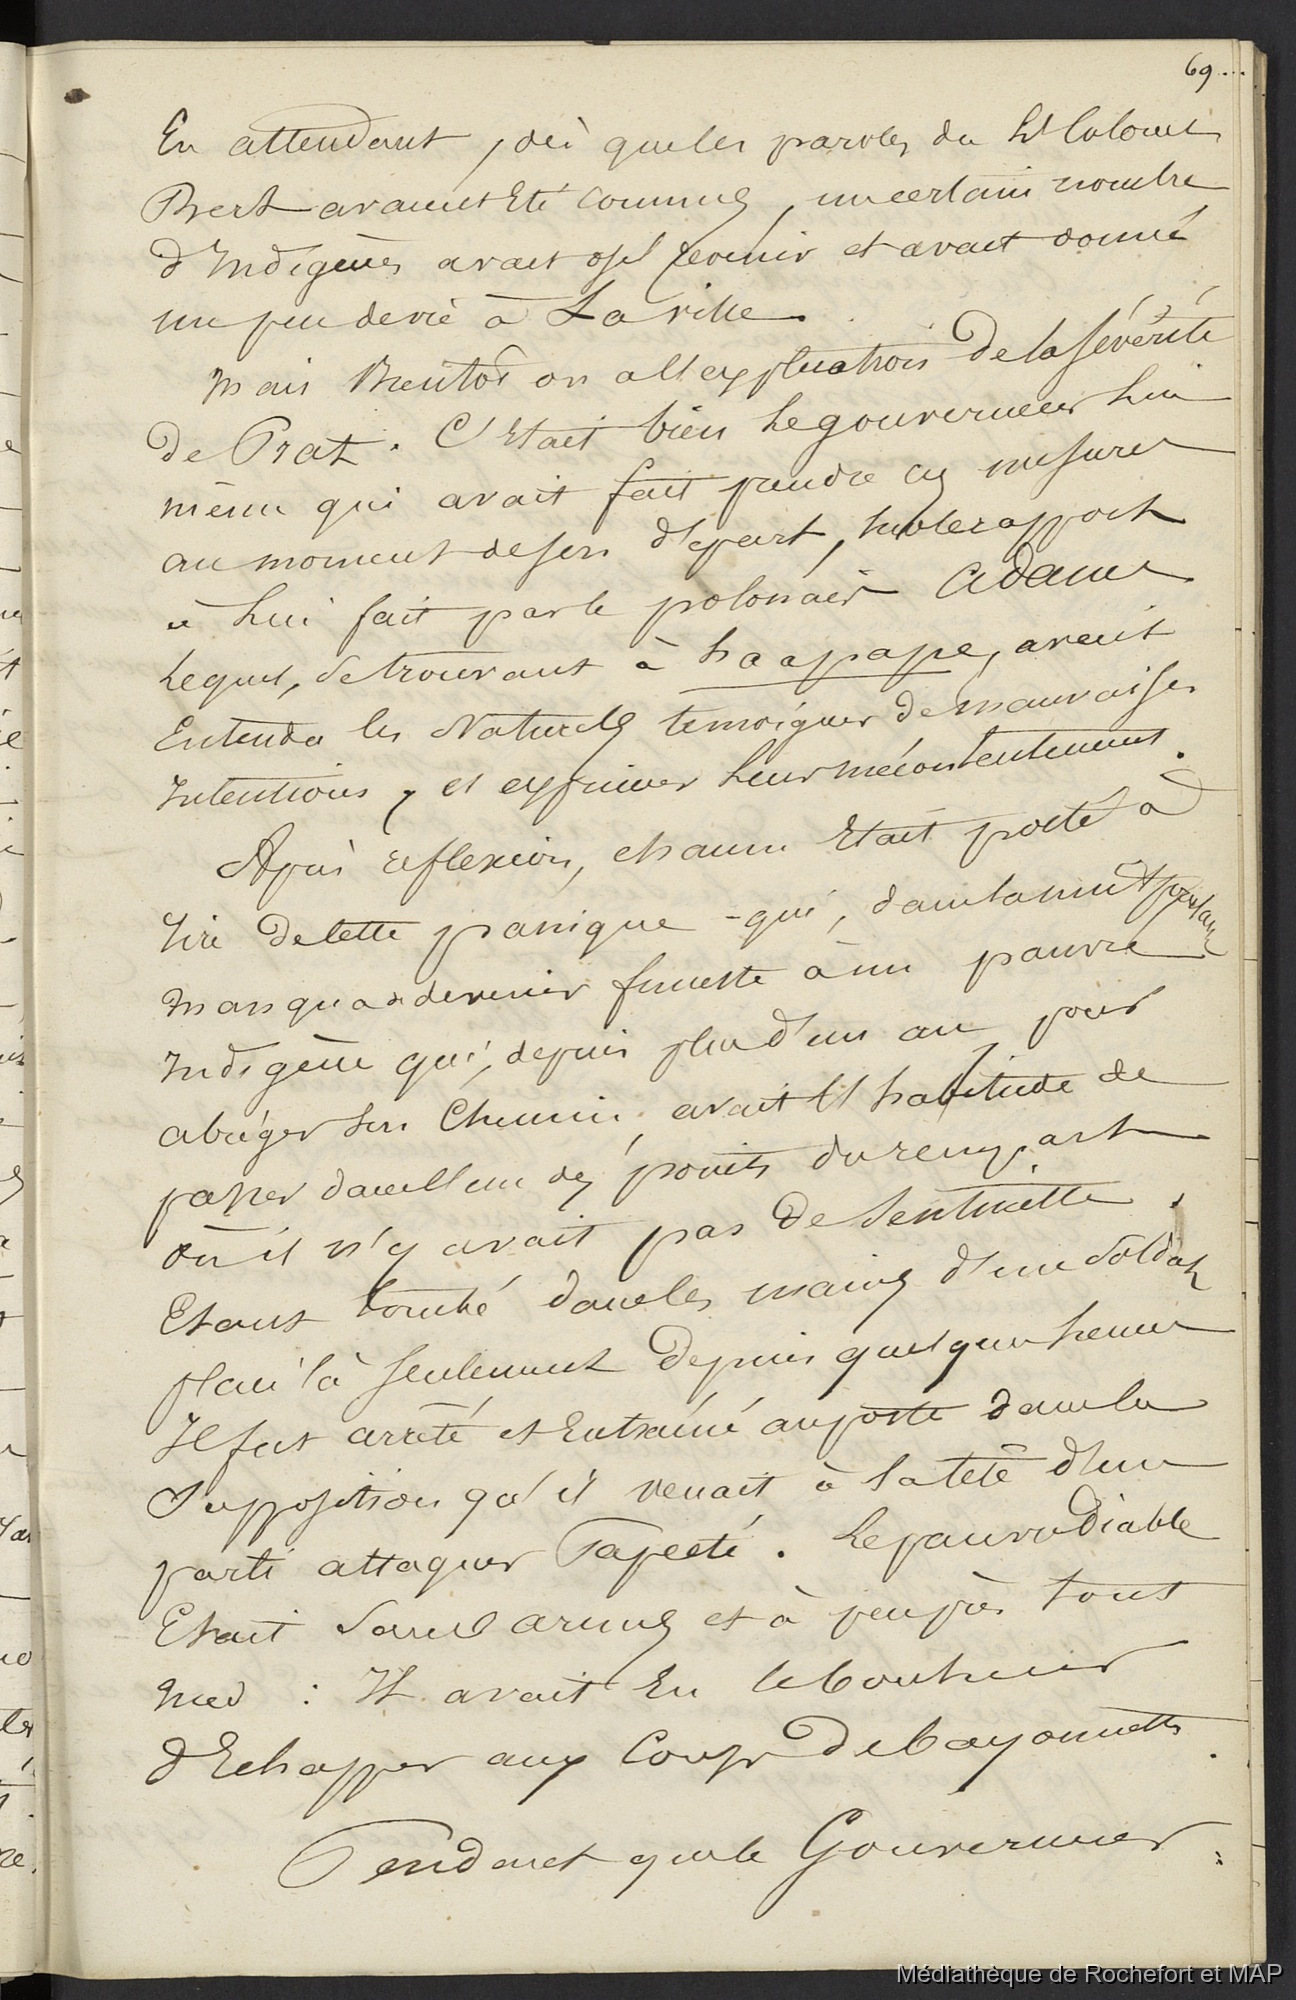 69...
En attendant, dès que les paroles du Lt Colonel
Brea avaient Eté connues, un certain nombre
d'Indigènes avait osé revenir et avait donné
un peu de vie à La ville.
Mais Bientôt on alt explications De la sévérité
De Prat. C'Etait bien Le gouverneur Lui
même qui avait fait prendre ces mesures
au moment de son départ, sur le rapport
à Lui fait par le polonais Adams
Lequel, se trouvant à haapape, avait
Entendu les Naturels temoigner de mauvaises
Intentions, et exprimer Leur mécontentement.
Après reflexion, chacun Etait porté à
rire De cette panique qui, dans la nuit pourtant
manqua de devenir funeste à un pauvre
Indigène qui, depuis plus d'un an, pour
abréger son Chemin, avait l'habitude de
passer dans l'un des points du rempart
où il n'y avait pas De Sentinelle.
Etant tombé dans les mains d'un Soldat
placé là seulement Depuis quelques heures
Il fut arrêté et Entraîné au poste dans la
Supposition qu'il venait à la tête d'un
parti attaquer Papeete. Le pauvre Diable
Etait Sans armes et à peu près tout
nud : Il avait Eu le bonheur
d'Echapper aux Coups De bayonnette.
Pendant que le Gouverneur
Médiathèque de Rochefort et MAP